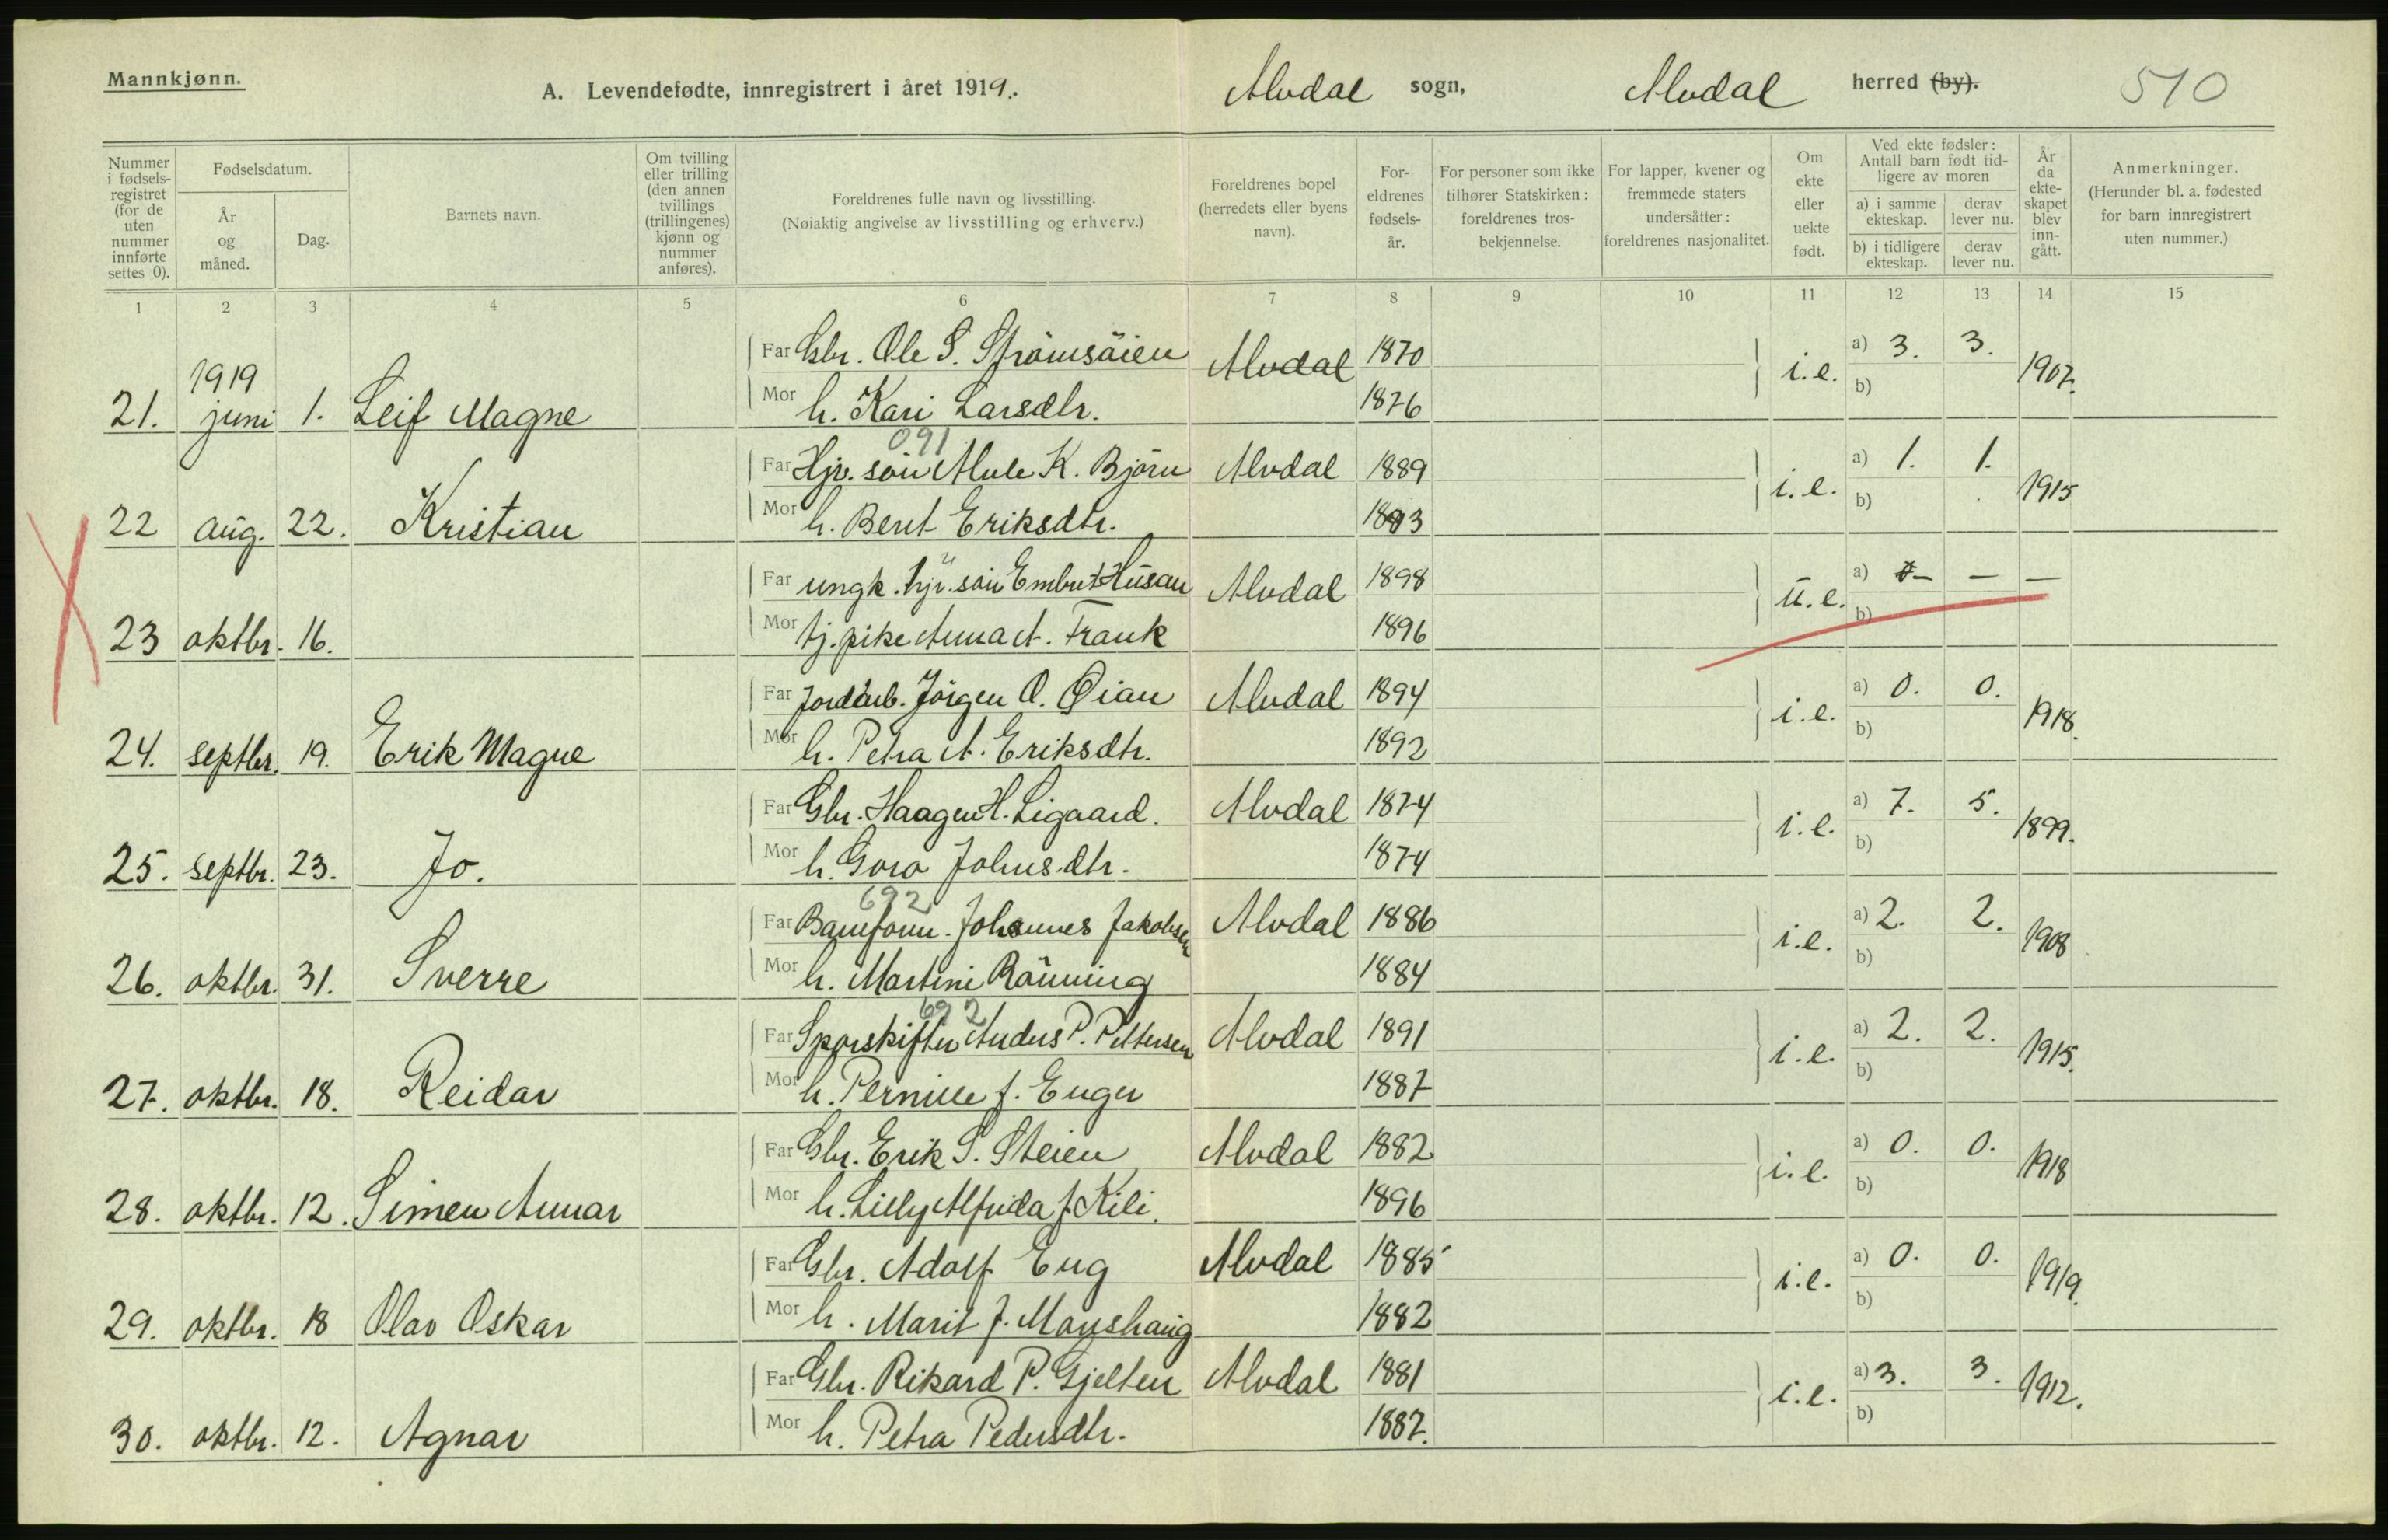 Mannkjønn.
A. Levendefødte, innregistrert i året 1919.
Alvdal sogn, Alvdal herred (by). 510
Nummer i fødsels-registret (for de uten nummer innførte settes 0).
Fødselsdatum.
År og måned.
Dag.
Barnets navn.
Om tvilling eller trilling (den annen tvillings (trillingenes) kjønn og nummer anføres).
Foreldrenes fulle navn og livsstilling.
(Nøiaktig angivelse av livsstilling og erhverv.)
Foreldrenes bopel (herredets eller byens navn).
For-eldrenes fødsels-år.
For personer som ikke tilhører Statskirken: foreldrenes tros-bekjennelse.
For lapper, kvener og fremmede staters undersåtter: foreldrenes nasjonalitet.
Om ekte eller uekte født.
Ved ekte fødsler: Antall barn født tid-ligere av moren
a) i samme ekteskap.
derav lever nu.
b) i tidligere ekteskap.
derav lever nu.
År da ekte-skapet blev inn-gått.
Anmerkninger.
(Herunder bl. a. fødested for barn innregistrert uten nummer.)
1 2 3 4 5 6 7 8 9 10 11 12 13 14 15
Far Gbr. Ole S. Strømsøien Alvdal 1870 a) 3. 3.
1919 i.e. 1907.
21. juni 1. Leif Magne Mor h. Kari Larsdtr. 1876 b)
091
Far Hjv. søn Mule K. Bjørn Alvdal 1889 a) 1. 1.
22 aug. 22. Kristian Mor h. Beret Eriksdtr. 1893 i.e. b) 1915
Far ungk. hjv. søn Embret Husan Alvdal 1898 a) – – –
23 oktbr. 16. Mor tj. pike Anna A. Frank 1896 u.e. b)
Far Jordarb. Jørgen O. Øian Alvdal 1894 a) 0. 0.
24. septbr. 19. Erik Magne Mor h. Petra A. Eriksdtr. 1892 i.e. b) 1918.
Far Gbr. Haagen H. Ligaard. Alvdal 1874 a) 7. 5.
25. septbr. 23. Jo. Mor h. Goro Johnsdtr. 1874 i.e. b) 1899.
692
Far Baneform. Johannes Jakobsen Alvdal 1886 a) 2. 2.
26. oktbr. 31. Sverre Mor h. Martini Rønning 1884 i.e. b) 1908
692
Far Sporskifter Anders P. Pettersen Alvdal 1891 a) 2. 2.
27. oktbr. 18. Reidar Mor h. Pernille f. Enger 1887 i.e. b) 1915.
Far Gbr. Erik S. Steien Alvdal 1882 a) 0. 0.
28. oktbr. 12. Simen Annar Mor h. Lilly Alfrida f. Kili. 1896 i.e. b) 1918
Far Gbr. Adolf Eng Alvdal 1885 a) 0. 0.
29. oktbr. 18 Olav Oskar Mor h. Marit f. Moushaug 1882 i.e. b) 1919.
Far Gbr. Rikard P. Gjelten Alvdal 1881 a) 3. 3.
30. oktbr. 12. Agnar Mor h. Petra Pedersdtr. 1887. i.e. b) 1912.